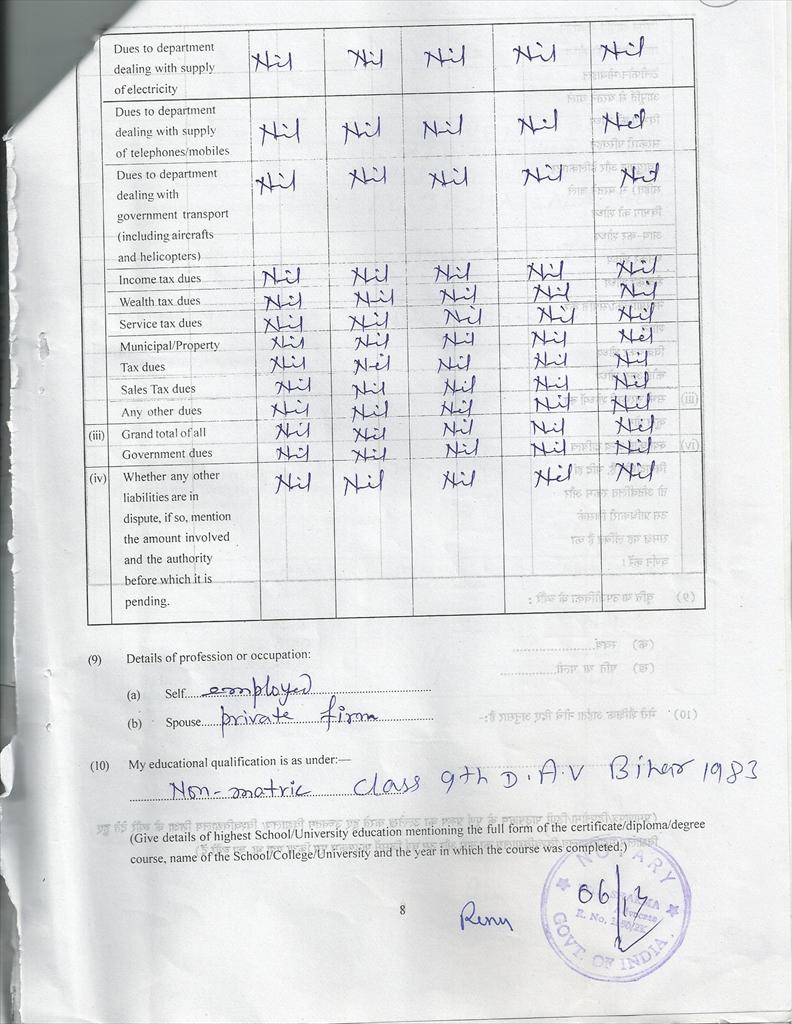 Dues to department
dealing with supply
of electricity
Nil Nil Nil Nil Nil
Dues to department
dealing with supply
of telephones/mobiles
Nil Nil Nil Nil Nil
Dues to department
dealing with
government transport
(including aircrafts
and helicopters)
Nil Nil Nil Nil Nil
Income tax dues Nil Nil Nil Nil Nil
Wealth tax dues Nil Nil Nil Nil Nil
Service tax dues Nil Nil Nil Nil Nil
Municipal/Property Nil Nil Nil Nil Nil
Tax dues Nil Nil Nil Nil Nil
Sales Tax dues Nil Nil Nil Nil Nil
Any other dues Nil Nil Nil Nil Nil
(iii) Grand total of all Nil Nil Nil Nil Nil
Government dues Nil Nil Nil Nil Nil
(iv) Whether any other Nil Nil Nil Nil Nil
liabilities are in
dispute, if so, mention
the amount involved
and the authority
before which it is
pending.
(9) Details of profession or occupation:
(a) Self employed
(b) Spouse private firm
(10) My educational qualification is as under:—
Non-matric Class 9th D.A.V Biher 1983
(Give details of highest School/University education mentioning the full form of the certificate/diploma/degree
course, name of the School/College/University and the year in which the course was completed.)
8
Renu
NOTARY
06/13
GOVT. OF INDIA